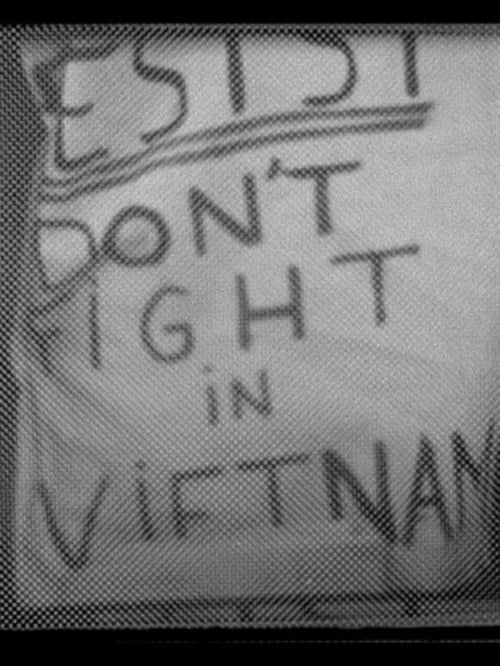 ESIST
DON'T
FIGHT
iN
ViETNAM